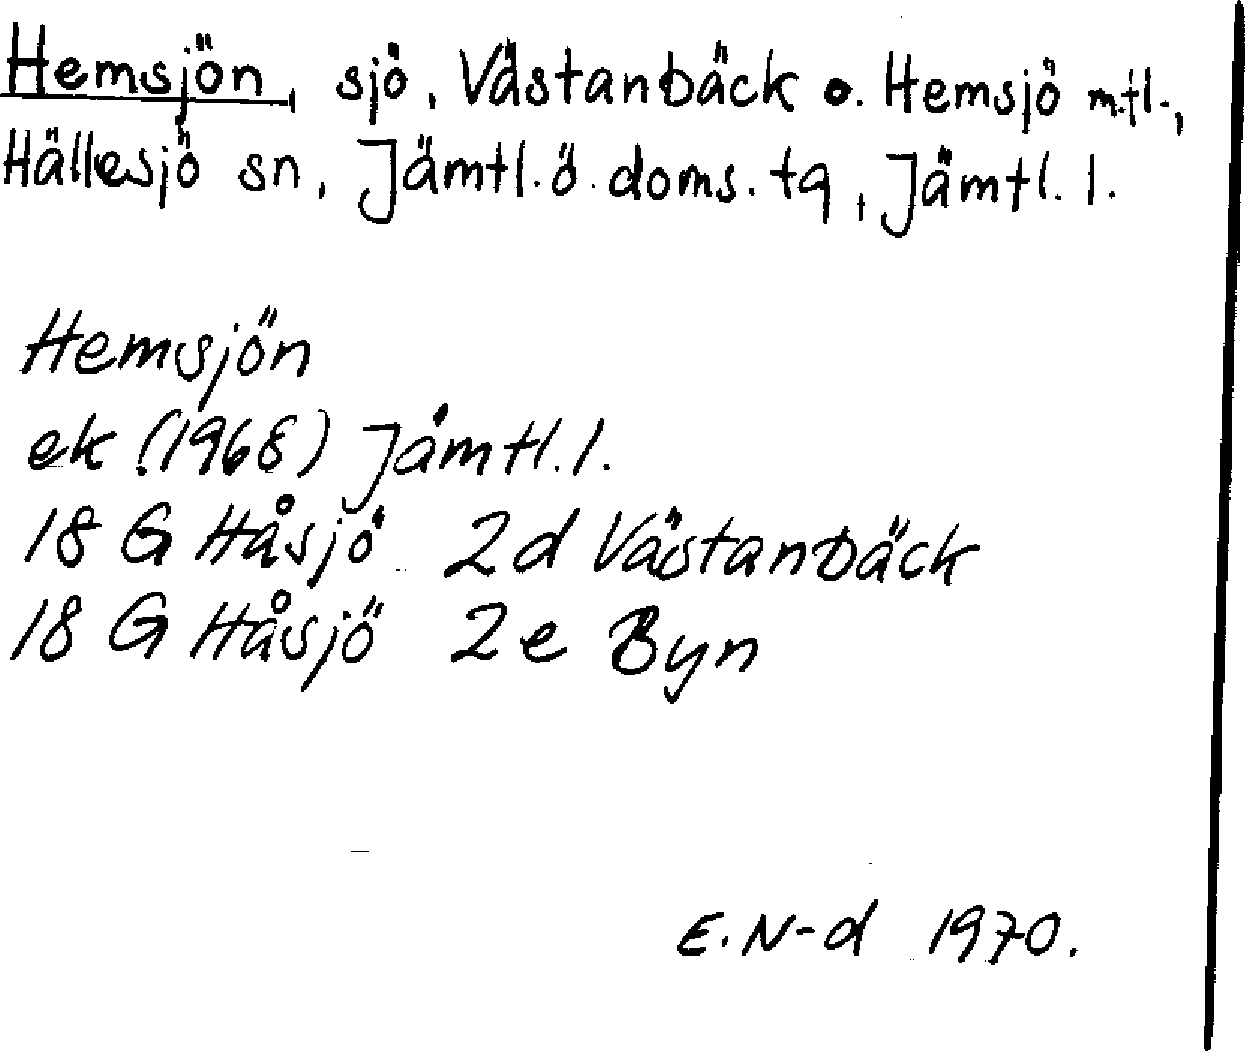 Hemsjön, sjö, Västanbäck o. Hemsjö mtl.,
Hällesjö sn, Jämtl. ö. doms. tg, Jämtl. l.
Hemsjön
ek (1968) Jämtl. l.
18 G Håsjö 2d Västanbäck
18 G Håsjö 2e Byn
E. N-d 1970.